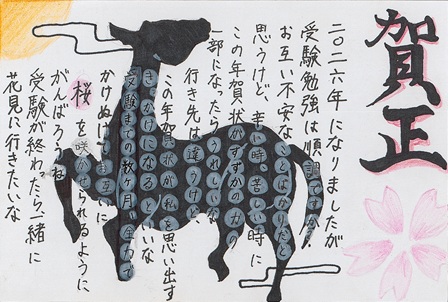 賀正
二〇二六年になりましたが
受験勉強は順調ですか?
お互い不安なことばかりだと
思うけど、辛い時、苦しい時に
この年賀状がすずかの力の
一部になったらうれしいな
行き先は違うけど、
この年賀状が私を思い出す
きっかけになるといいな
受験までの数ヶ月、全力で
かけぬけてお互いに
桜を咲かせられるように
がんばろうね
受験が終わったら一緒に
花見に行きたいな